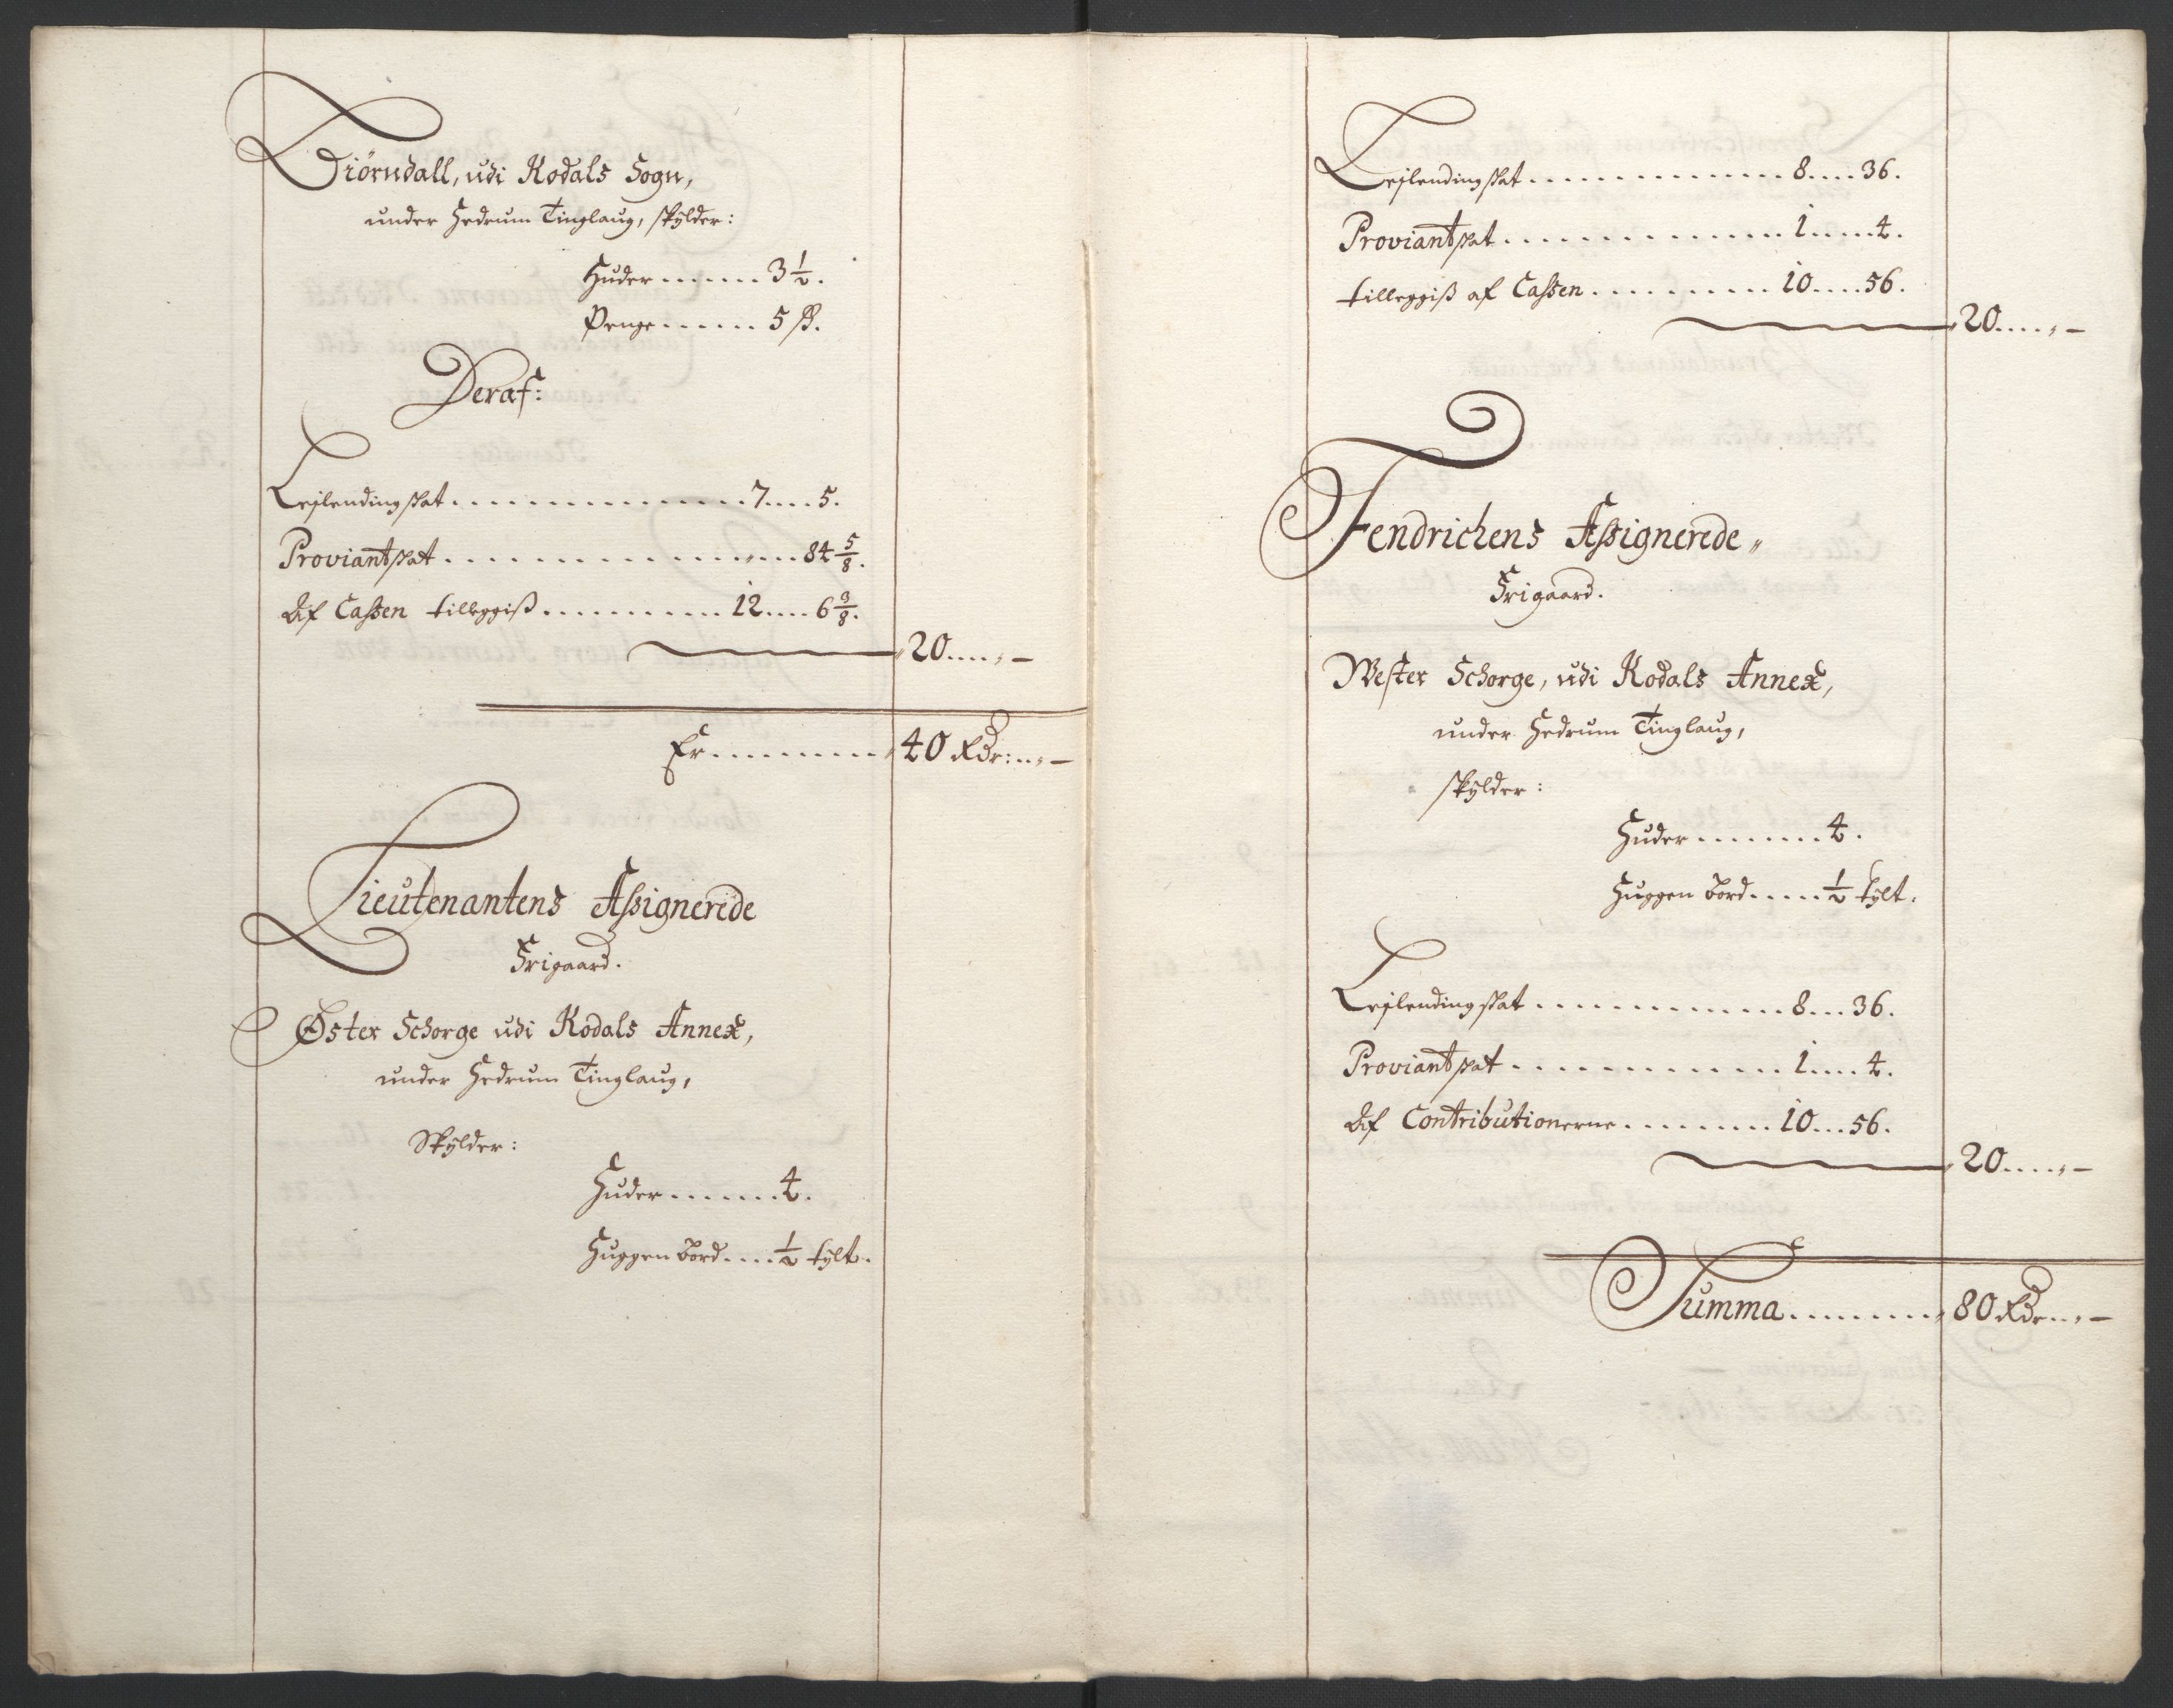 Diörndall, udi Kodals Sogn,
under Hedrum Tinglaug, skylder:
Huder......3½.
Penge......5 ß.
Deraf:
Lejlendingskat..............7....5.
Proviantskat..............„....84⅝.
Af Cassen tilleggiß.........12....6⅜.
20....„—
Er.........40 Rdr:..„—
Lieutenantens Assignerede
Frigaard.
Øster Schorge udi Kodals Annex,
under Hedrum Tinglaug,
Skylder:
Huder.......4.
Huggen bord....½ tylt.
Lejlendingskat..............8....36.
Proviantskat..............1....4.
tilleggiß af Cassen.........10....56.
20....„—
Fendrichens Assignerede„
Frigaard.
Wester Schorge, udi Kodals Annex,
under Hedrum Tinglaug,
skylder:
Huder.......4.
Huggen bord.....½ tylt.
Lejlendingskat.............8....36.
Proviantskat.............1....4.
Af Contributionerne........10...56.
20....„—
Summa........80 Rdr..„—